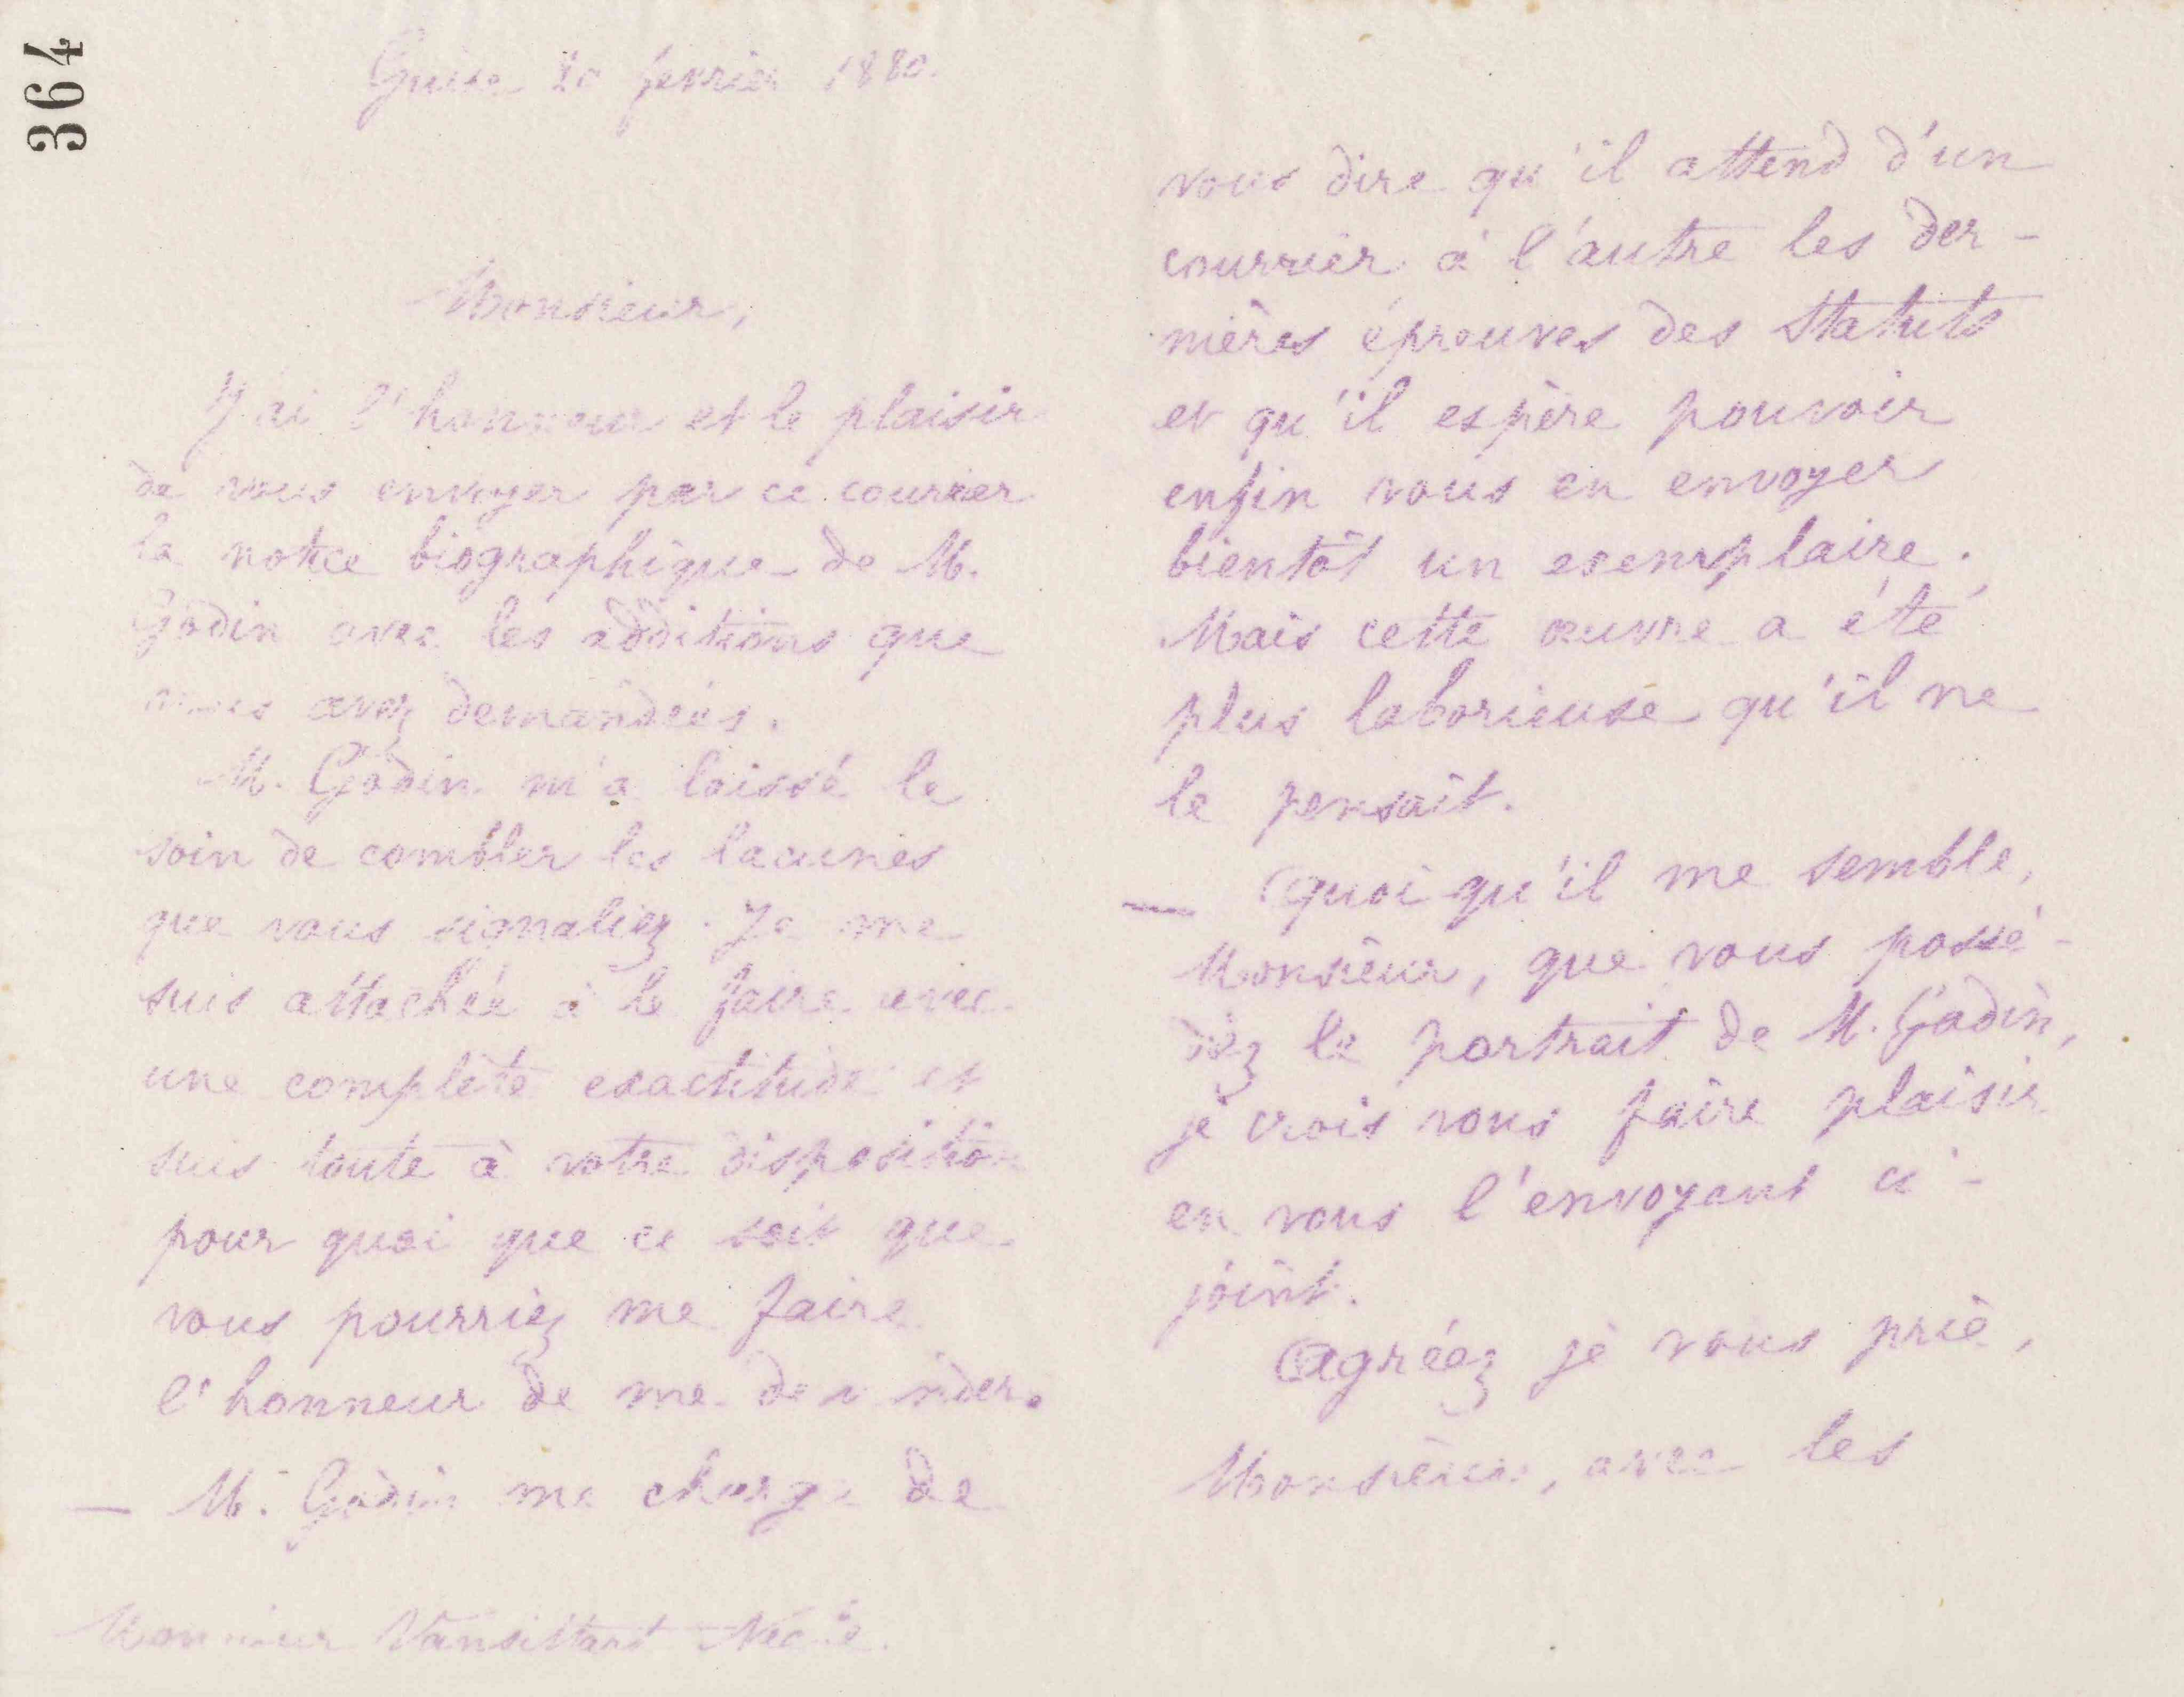 364
Guise 20 fevrier 1880.
Monsieur,
J'ai l'honneur et le plaisir
de vous envoyer par ce courrier
la notice biographique de M.
Godin avec les additions que
vous avez demandées.
M. Godin m'a laissé le
soin de combler les lacunes
que vous signaliez. Je me
suis attachée à le faire avec
une complète exactitude et
suis toute à votre disposition
pour quoi que ce soit que
vous pourriez me faire
l'honneur de me demander.
— M. Godin me charge de
Monsieur Vansittart Neale.
vous dire qu'il attend d'un
courrier à l'autre les der-
nières épreuves des Statuts
et qu'il espère pouvoir
enfin vous en envoyer
bientôt un exemplaire.
Mais cette œuvre a été
plus laborieuse qu'il ne
le pensait.
— Quoi qu'il me semble,
Monsieur, que vous possé-
diez le portrait de M. Godin,
je crois vous faire plaisir
en vous l'envoyant ci-
joint.
Agréez je vous prie,
Monsieur, avec les